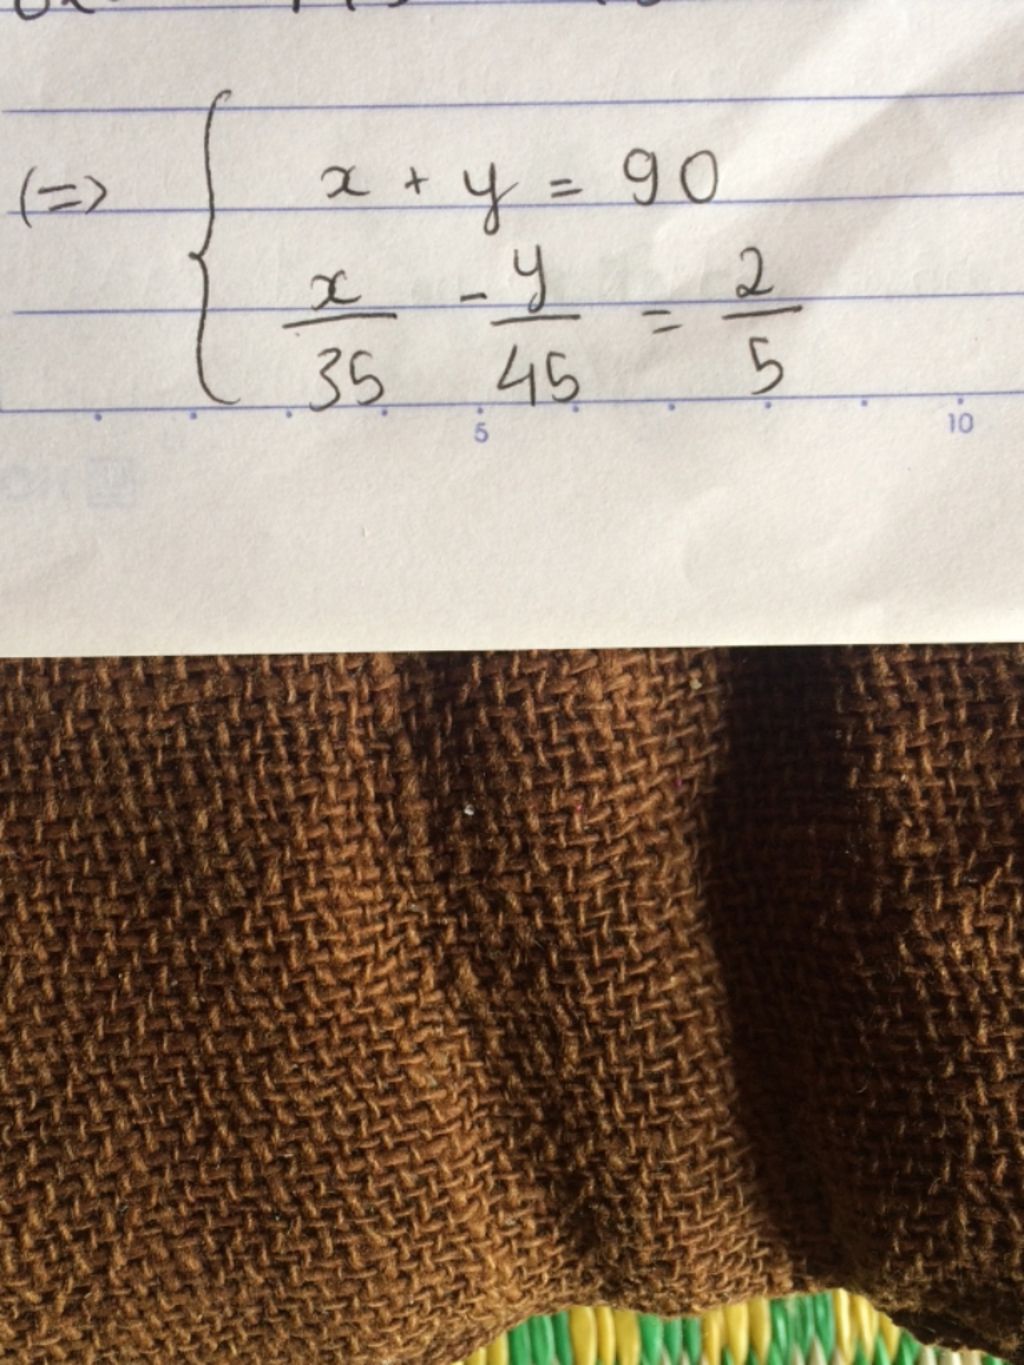 (=> { x + y = 90
x/35 - y/45 = 2/5
5 10